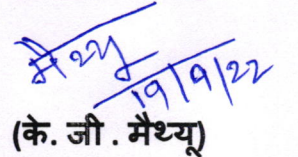 मैथ्यू
19/9/22
(के. जी . मैथ्यू)